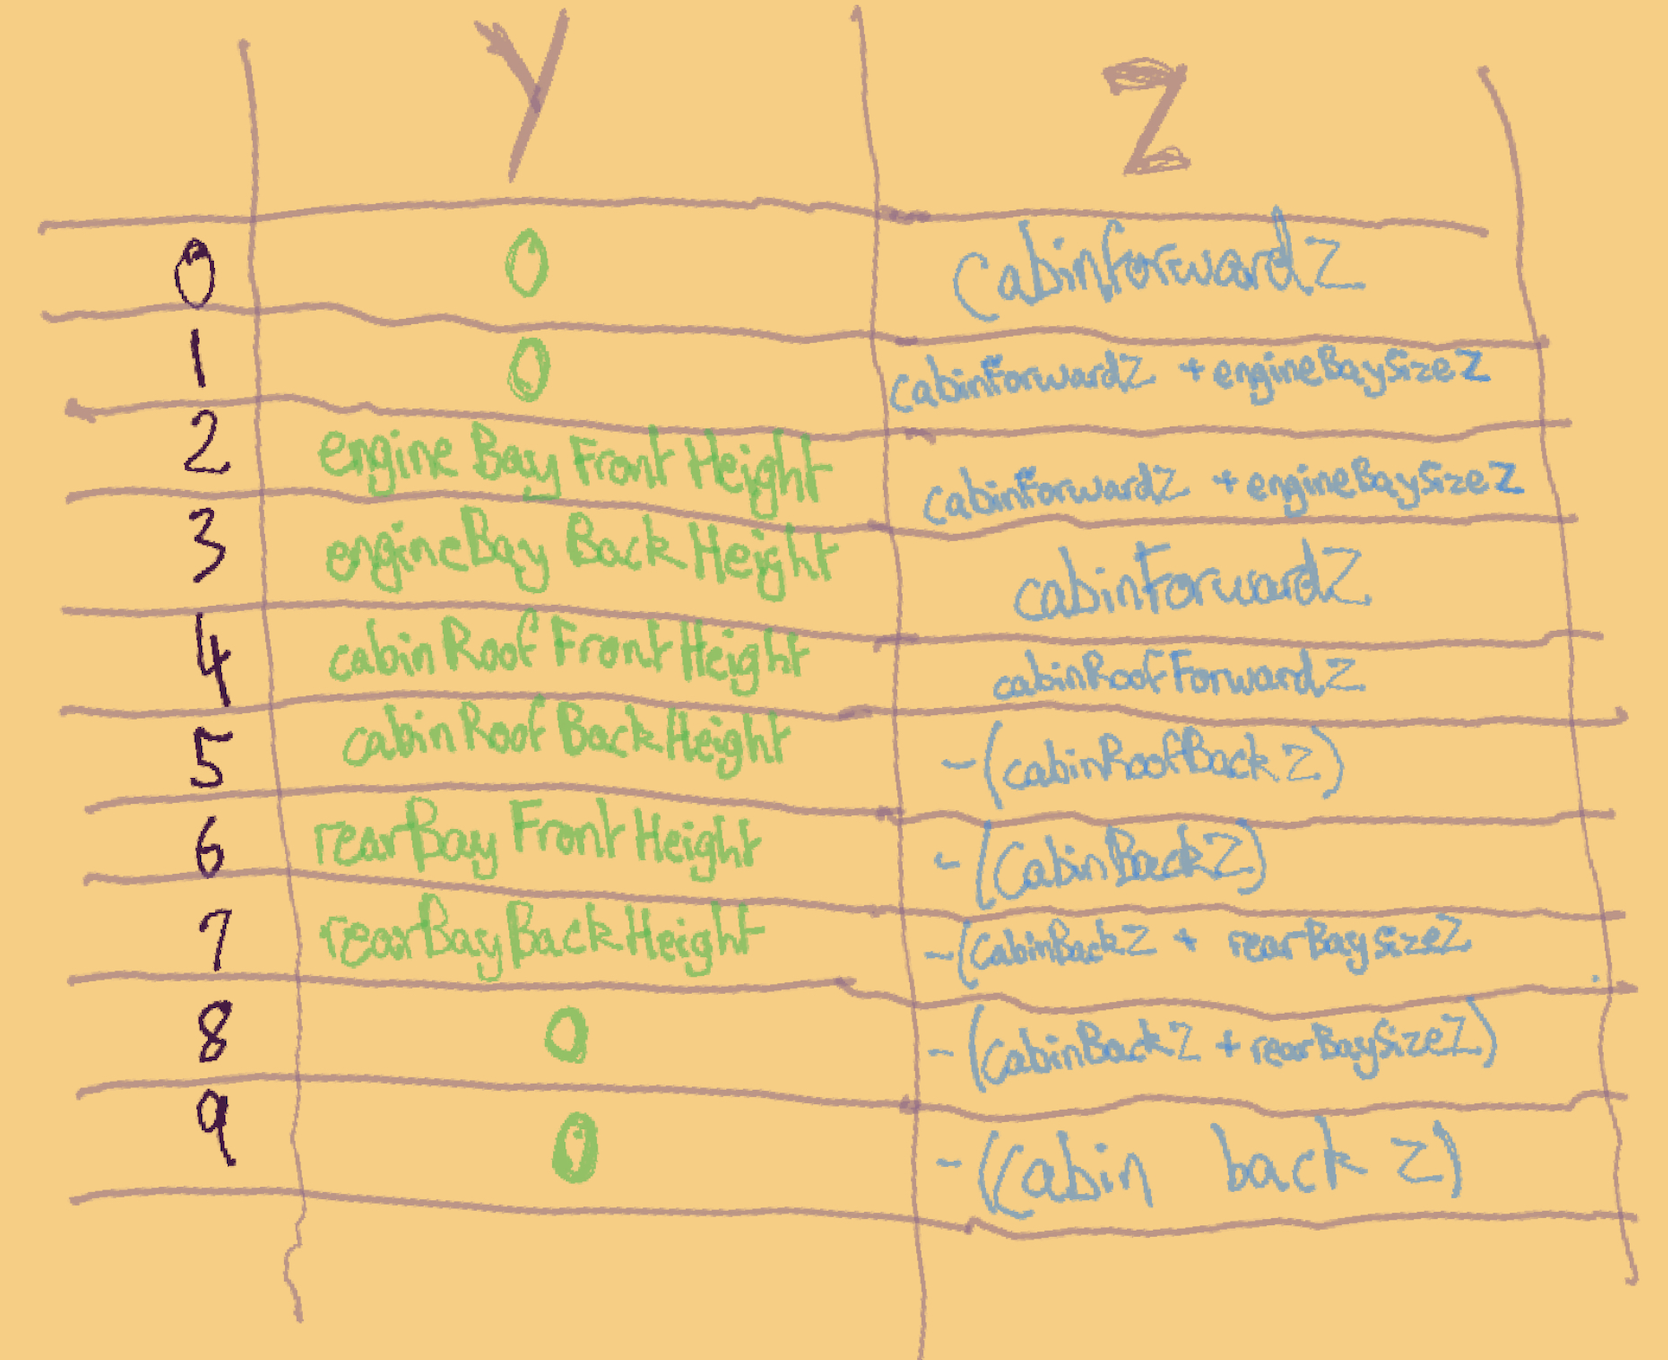 Y Z
0 0 cabinForwardZ
1 0 cabinForwardZ + engineBaySizeZ
2 engine Bay Front Height cabinForwardZ + engineBaySizeZ
3 engineBay Back Height cabinForwardZ
4 cabin Roof Front Height cabinRoofForwardZ
5 cabin Roof Back Height -(cabinRoofBackZ)
6 rearBay Front Height -(CabinBackZ)
7 rearBay Back Height -(CabinBackZ + rearBaysizeZ
8 0 -(CabinBackZ + rearBaySizeZ)
9 0 -(Cabin back Z)